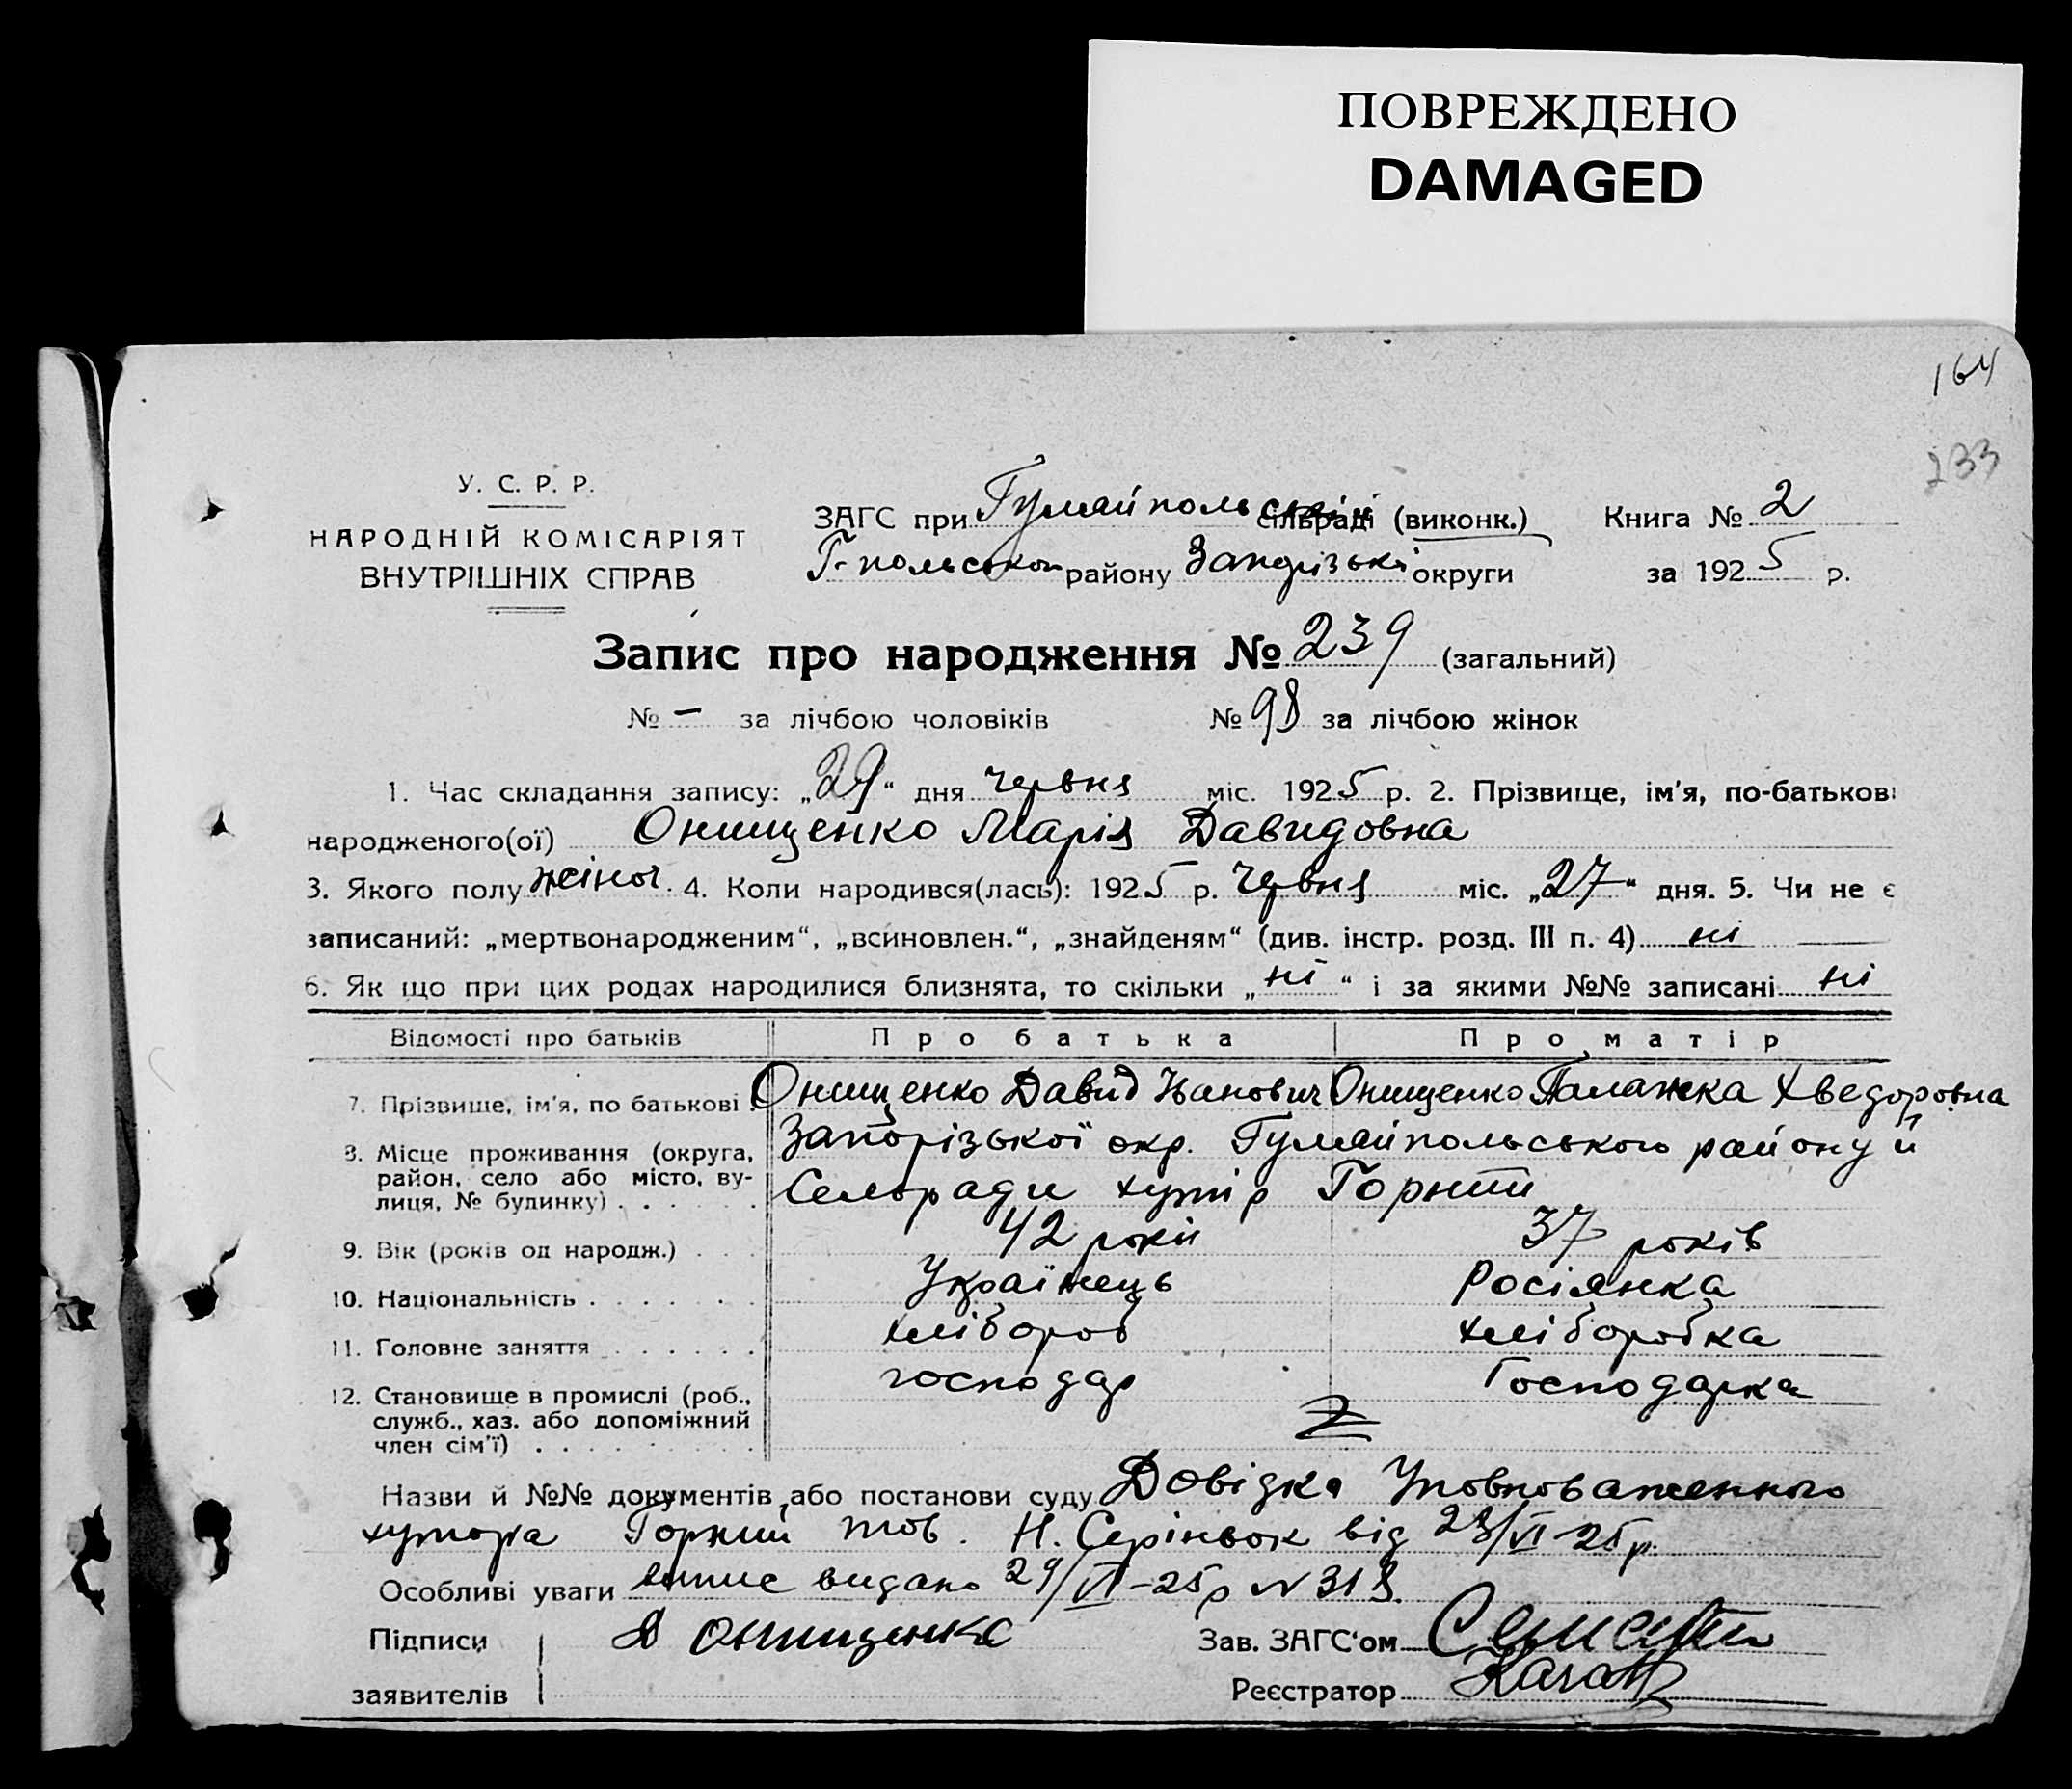 ПОВРЕЖДЕНО
DAMAGED
164
233
У. С. Р. Р.
НАРОДНІЙ КОМІСАРІЯТ
ВНУТРІШНІХ СПРАВ
ЗАГС при Гуляйпольській сільраді (виконк.)
Г-польськом району Запорізької округи
Книга № 2
за 1925 р.
Запис про народження № 239 (загальний)
№ — за лічбою чоловіків № 98 за лічбою жінок
1. Час складання запису: „29“ дня червня міс. 1925 р. 2. Прізвище, ім'я, по-батькові
народженого(ої) Онищенко Марія Давидовна
3. Якого полу жіноч. 4. Коли народився(лась): 1925 р. червня міс. „27“ дня. 5. Чи не є
записаний: „мертвонародженим“, „всиновлен.“, „знайденям“ (див. інстр. розд. III п. 4) ні
6. Як що при цих родах народилися близнята, то скільки „ні“ і за якими №№ записані ні
Відомості про батьків Про батька Про матір
7. Прізвище, ім'я, по батькові Онищенко Давид Іванович Онищенко Палажка Хведоровна
8. Місце проживання (округа, район, село або місто, вулиця, № будинку) Запорізької окр. Гуляйпольського району й
Сельради хутір Горький
9. Вік (років од народж.) 42 роки 37 років
10. Національність Українець Росіянка
11. Головне заняття хлібороб хліборобка
12. Становище в промислі (роб., служб., хаз. або допоміжний член сім'ї) господар Господарка
Назви й №№ документів або постанови суду Довідка Уповноваженного
хутора Горький тов. Н. від 28/VI-25р.
Особливі уваги випис видано 29/VI-25р N 318.
Підписи заявителів Д Онищенко
Зав. ЗАГС'ом
Реєстратор